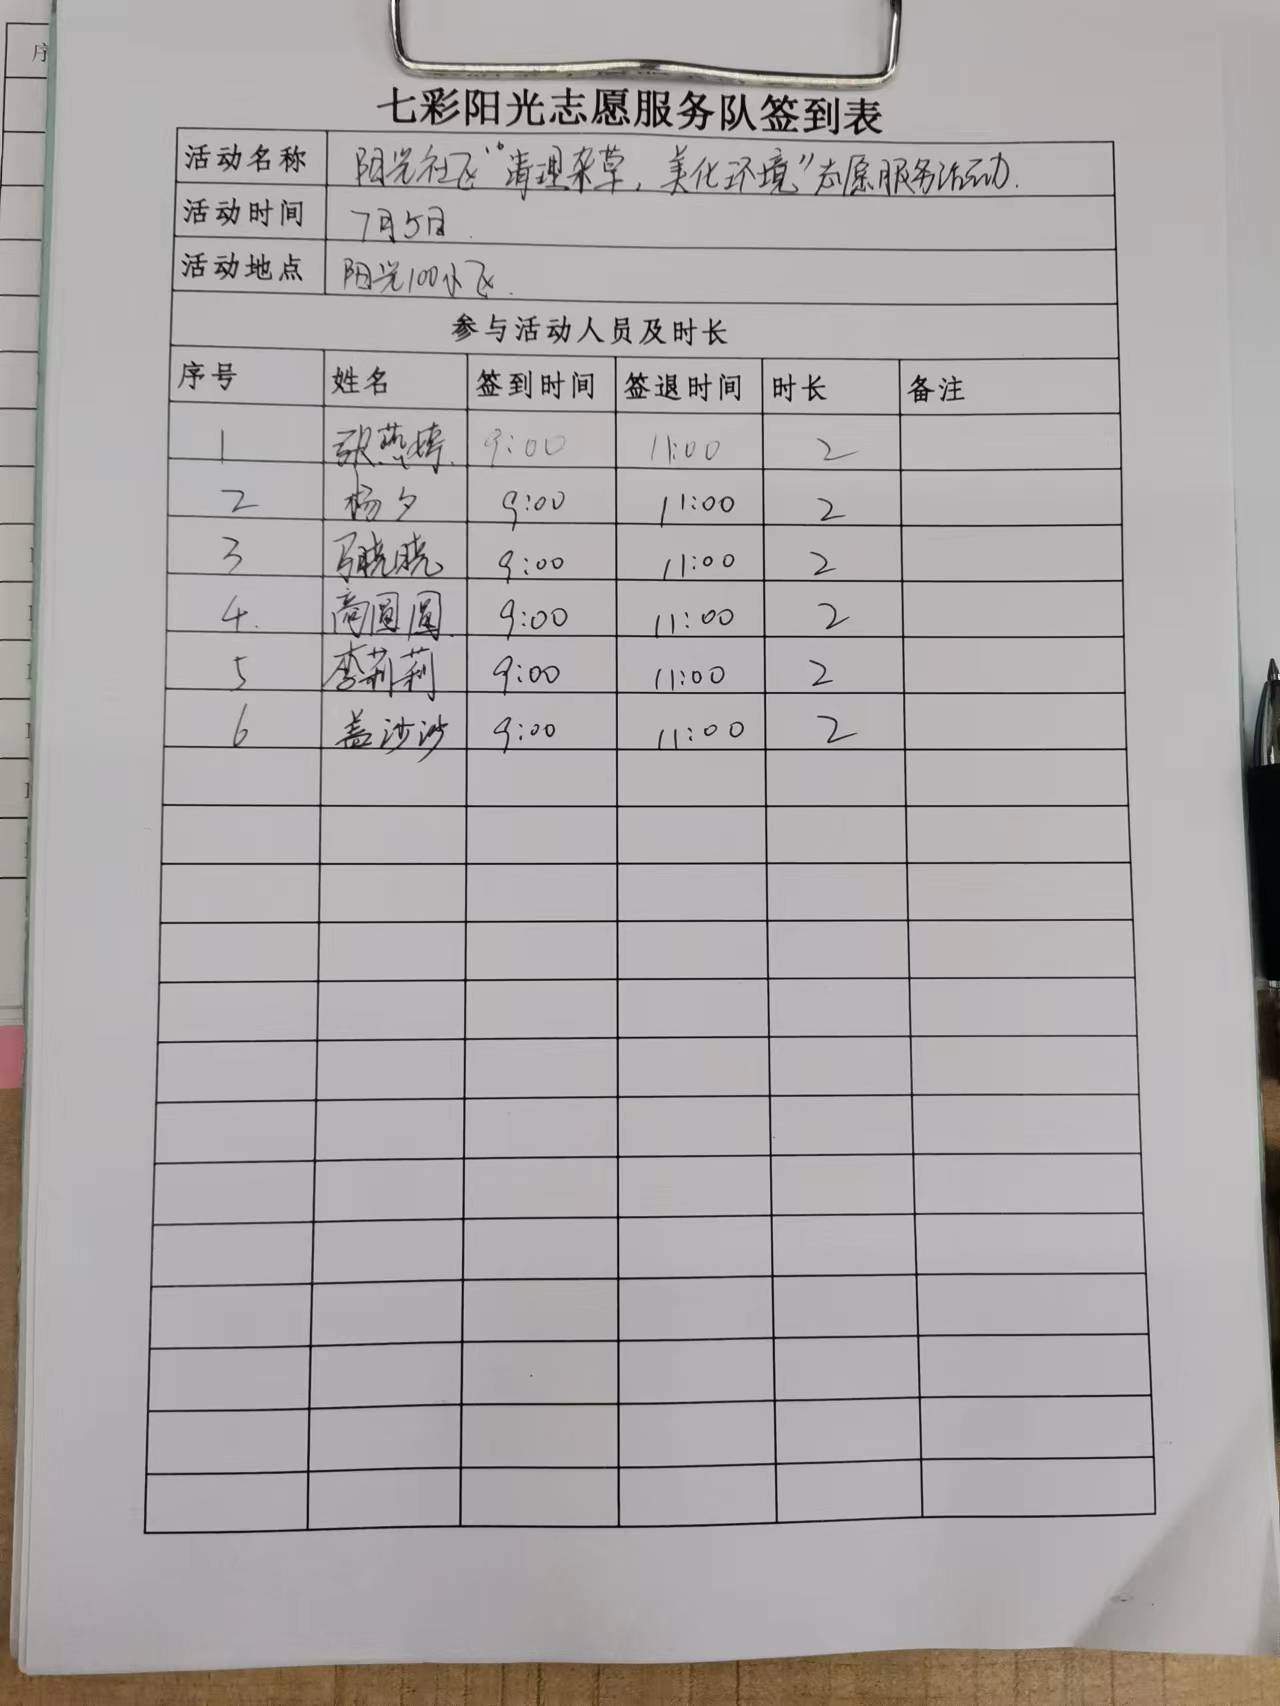 七彩阳光志愿服务队签到表
活动名称 阳光社区“清理杂草，美化环境”志愿服务活动.
活动时间 7月5日.
活动地点 阳光100小区.
参与活动人员及时长
序号 姓名 签到时间 签退时间 时长 备注
1 张燕婷. 9:00 11:00 2
2 杨夕 9:00 11:00 2
3 马晓晓 9:00 11:00 2
4. 商圆圆. 9:00 11:00 2
5 李莉莉 9:00 11:00 2
6 盖沙沙 9:00 11:00 2
序